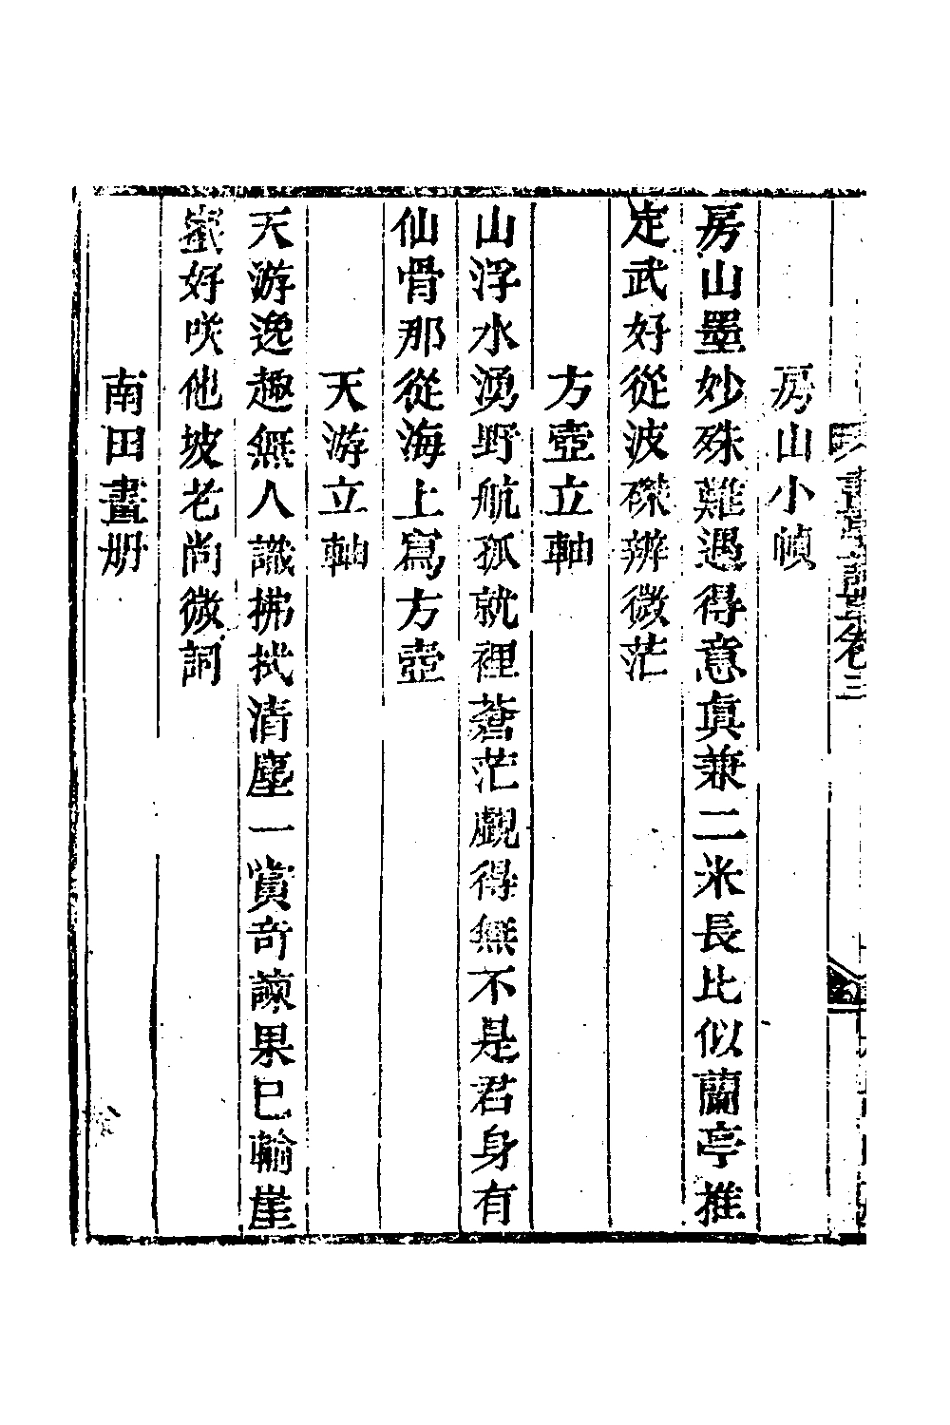 房山小幀
房山墨妙殊難遇得意眞兼二米長比似蘭亭推
定武好從波磔辨微茫
方壺立軸
山浮水湧野航孤就裡蒼茫覷得無不是君身有
仙骨那從海上寫方壺
天游立軸
天游逸趣無人識拂拭清塵一賞奇諫果已輸崖
蜜好咲他坡老尚微詞
南田畫册